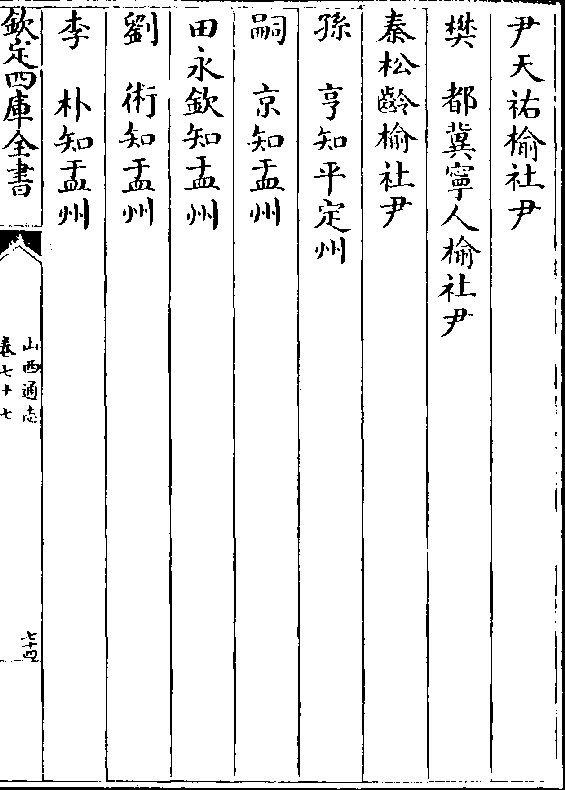 尹天祐榆社尹
樊　都冀寧人榆社尹
秦松齡榆社尹
孫　亨知平定州
嗣　京知盂州
田永欽知盂州
劉　術知盂州
李　朴知盂州
欽定四庫全書
山西通志
卷七十七
七十四